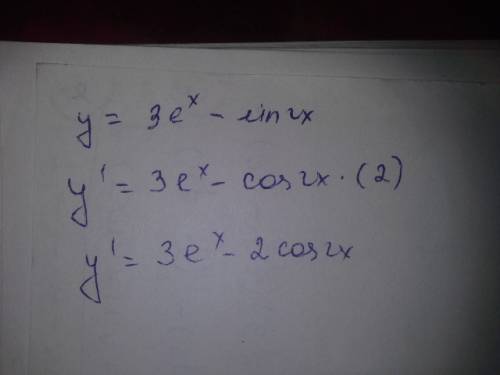 y = 3e^x - sin2x
y' = 3e^x - cos2x · (2)
y' = 3e^x - 2cos2x